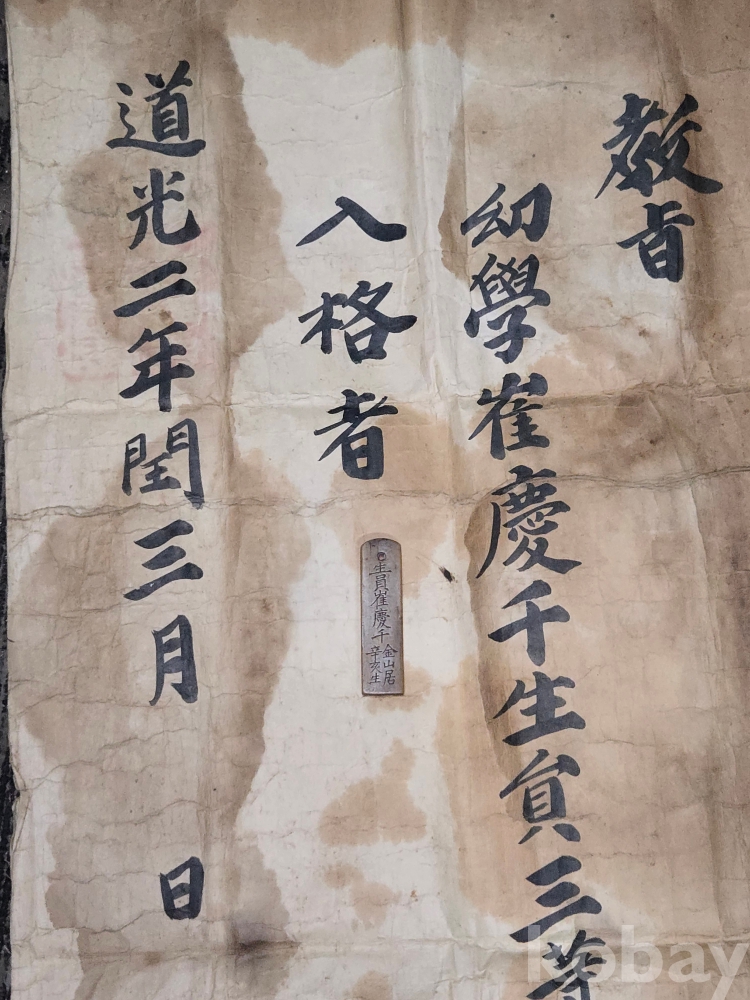 教旨
幼學崔慶千生員三等
入格者
生員崔慶千
金山居
辛亥生
道光二年閏三月 日
Kobay